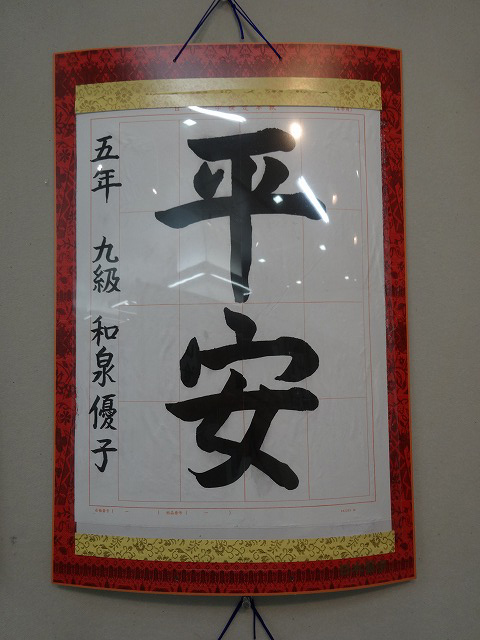 平安
五年 九級 和泉優子